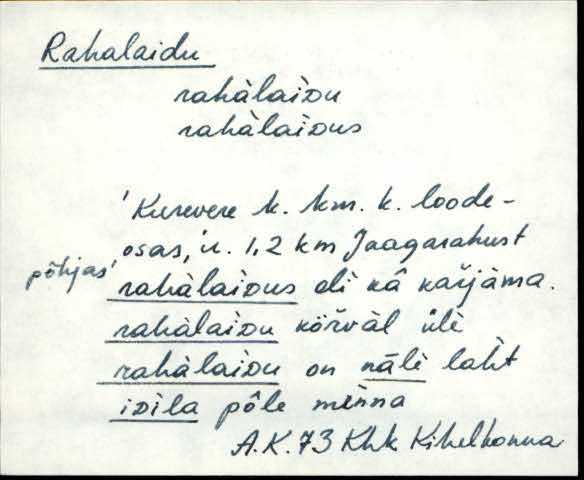 Rahalaidu
rahàlaiᴅu
rahàlaiᴅus
'Kurevere k. km. k. loode-
osas, u. 1,2 km Jaagarahust
põhjas'
rahàlaiᴅus oli kâ kaŕjàma.
rahàlaiᴅu kõrvàl üle
rahàlaiᴅu on nāli laht
iᴅila pōle menna
A.K. 73 Khk Kihelkonna